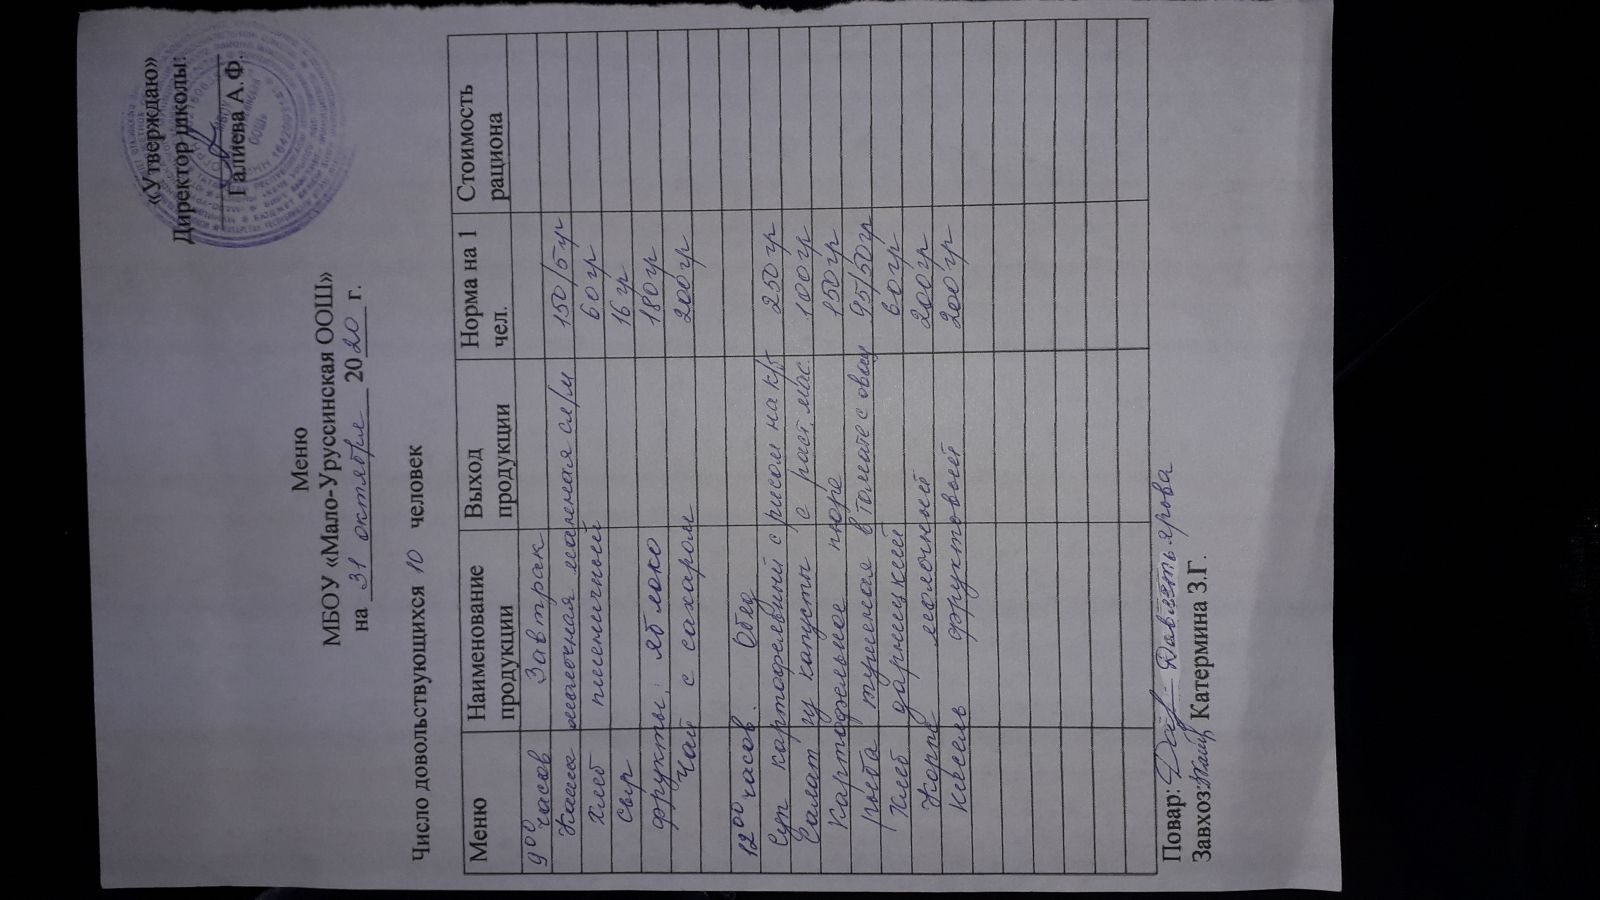 «Утверждаю»
Директор школы:
Галиева А.Ф.
Меню
МБОУ «Мало-Уруссинская ООШ»
на 31 октября 2020 г.
Число довольствующихся 10 человек
Меню Наименование продукции Выход продукции Норма на 1 чел. Стоимость рациона
9 00 часов Завтрак
Каша молочная манная сл/м 150/5 гр
хлеб пшеничный 60 гр
сыр 16 гр
фрукты: яблоко 180 гр
Чай с сахаром 200 гр
12 00 часов. Обед
Суп картофельный с рисом на к/б 250 гр
Салат из капусты с раст. мас. 100 гр
Картофельное пюре 150 гр
рыба тушеная в томате с овощ 95/50 гр
Хлеб дарницкий 60 гр
молочный 200 гр
Кисель фруктовый 200 гр
Повар: Давлетьярова
Завхоз: Катермина З.Г.